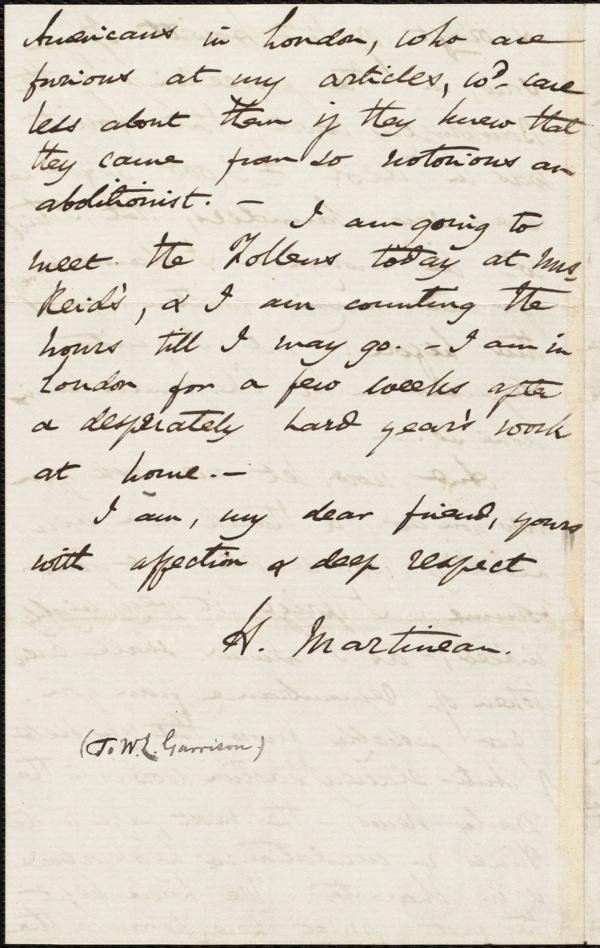 Americans in London, who are
furious at my articles, wd. care
less about them if they knew that
they came from so notorious an
abolitionist. — I am going to
meet the Follens today at Mrs.
Reid's, & I am counting the
hours till I may go. — I am in
London for a few weeks after
a desperately hard year's work
at home. —
I am, my dear friend, yours
with affection & deep respect
H. Martineau.
(To W. L. Garrison.)